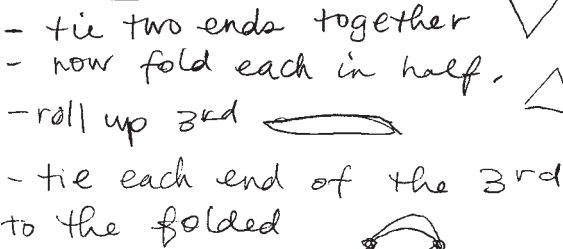 - tie two ends together
- now fold each in half.
- roll up 3rd
- tie each end of the 3rd
to the folded